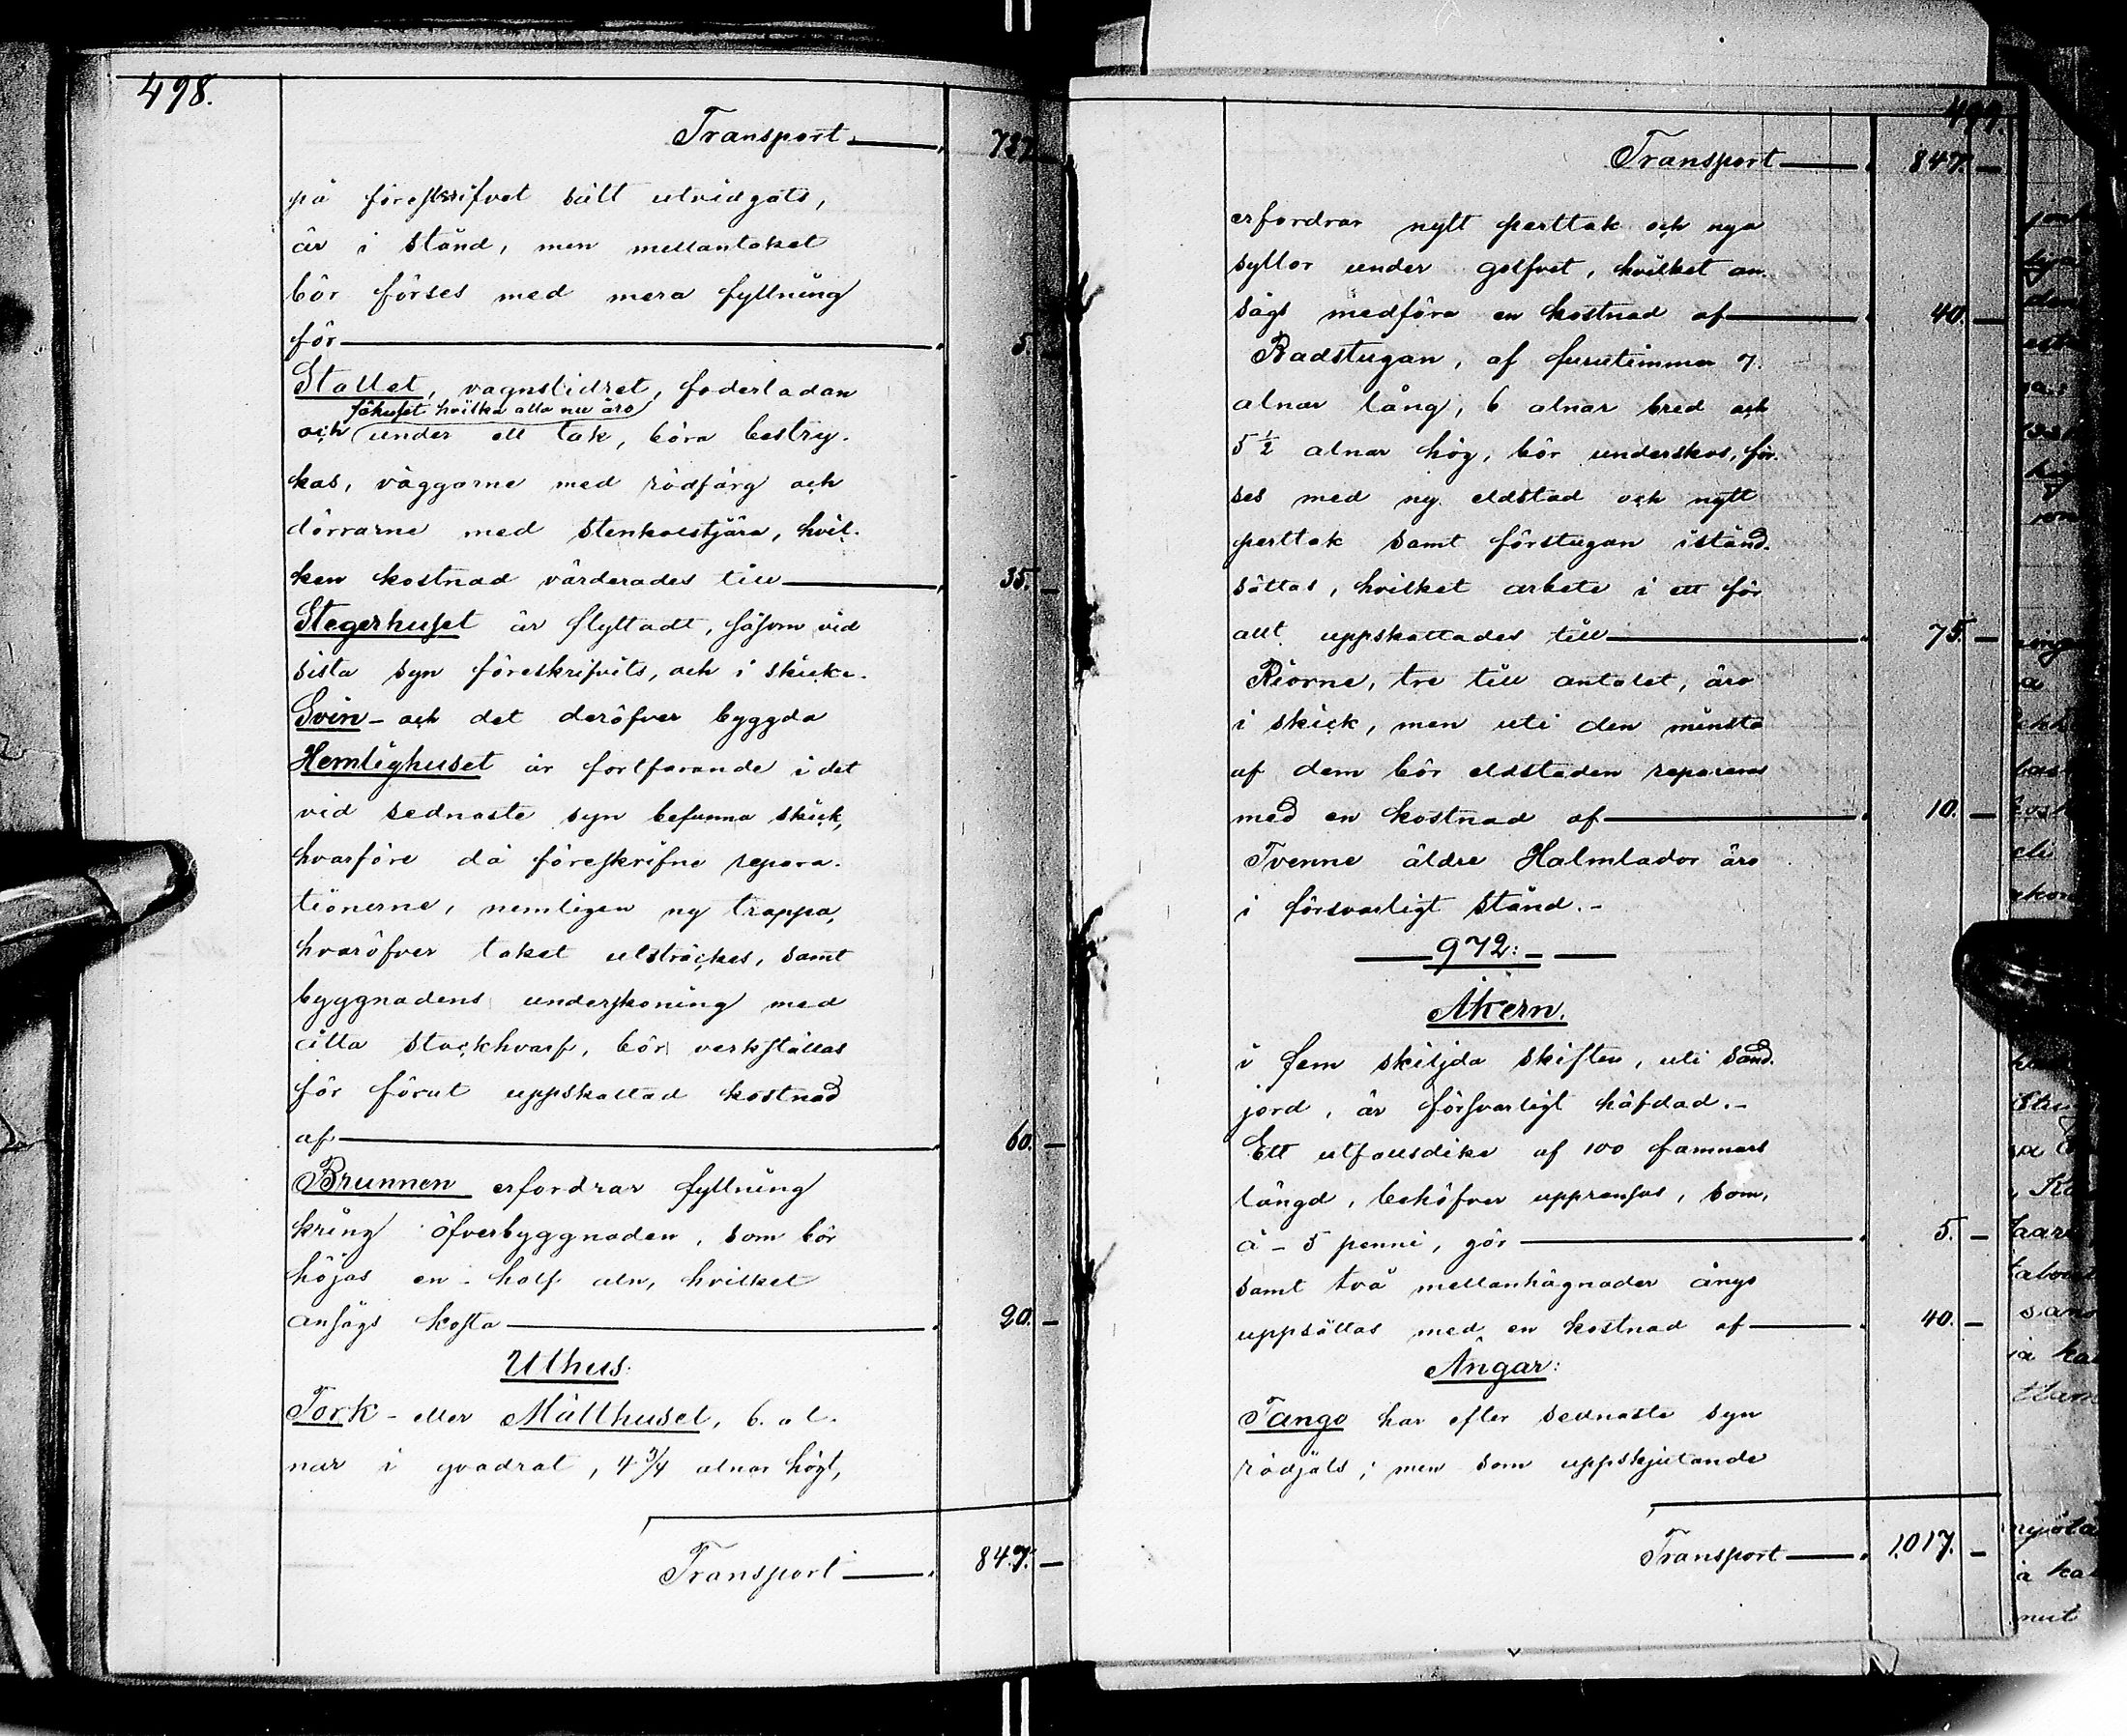 498.
Transport 727.
på föreskrifvet sätt utvidgats,
är i stånd, men mellantaket
bör förses med mera fyllning
för 5. –
Stallet, vagnslidret, foderladan
fähuset hvilka alla nu äro
och under ett tak, böra bestry-
kas, väggarne med rödfärg och
dörrarne med stenkolstjära, hvil-
ken kostnad värderades till 35. –
Stegerhuset är flyttadt, såsom vid
sista syn föreskrifvits, och i skick.
Svin- och det deröfver byggda
Hemlighuset är fortfarande i det
vid sednaste syn befunna skick,
hvarföre då föreskrifne repara-
tionerne, nemligen ny trappa,
hvaröfver taket utsträckes, samt
byggnadens underskoning med
åtta stockhvarf, bör verkställas
för förut uppskattad kostnad
af 60. –
Brunnen erfordrar fyllning
kring öfverbyggnaden, som bör
höjas en half aln, hvilket
ansågs kosta 20. –
Uthus:
Tork- eller Mälthuset, 6. al-
nar i qvadrat, 4 3/4 alnar högt,
Transport 847. –
499.
Transport 847. –
erfordrar nytt perttak och nya
syllor under golfvet, hvilket an-
sågs medföra en kostnad af 40. –
Badstugan, af furutimmer 7.
alnar lång, 6 alnar bred och
5 1/2 alnar hög, bör underskos, för-
ses med ny eldstad och nytt
perttak samt förstugan istånd-
sättas, hvilket arbete i ett för
allt uppskattades till 75. –
Riorne, tre till antalet, äro
i skick, men uti den minsta
af dem bör eldstaden repareras
med en kostnad af 10. –
Tvenne äldre Halmlador äro
i försvarligt stånd. –
972: –
Åkern.
i fem skiljda skiften, uti sand-
jord, är försvarligt häfdad. –
Ett utfallsdike af 100 famnars
längd, behöfver upprensas, som,
à – 5 penni, gör 5. –
samt två mellanhägnader ånyo
uppsättas med en kostnad af 40. –
Ängar:
Tango har efter sednaste syn
rödjats; men som uppskjutande
Transport 1,017. –